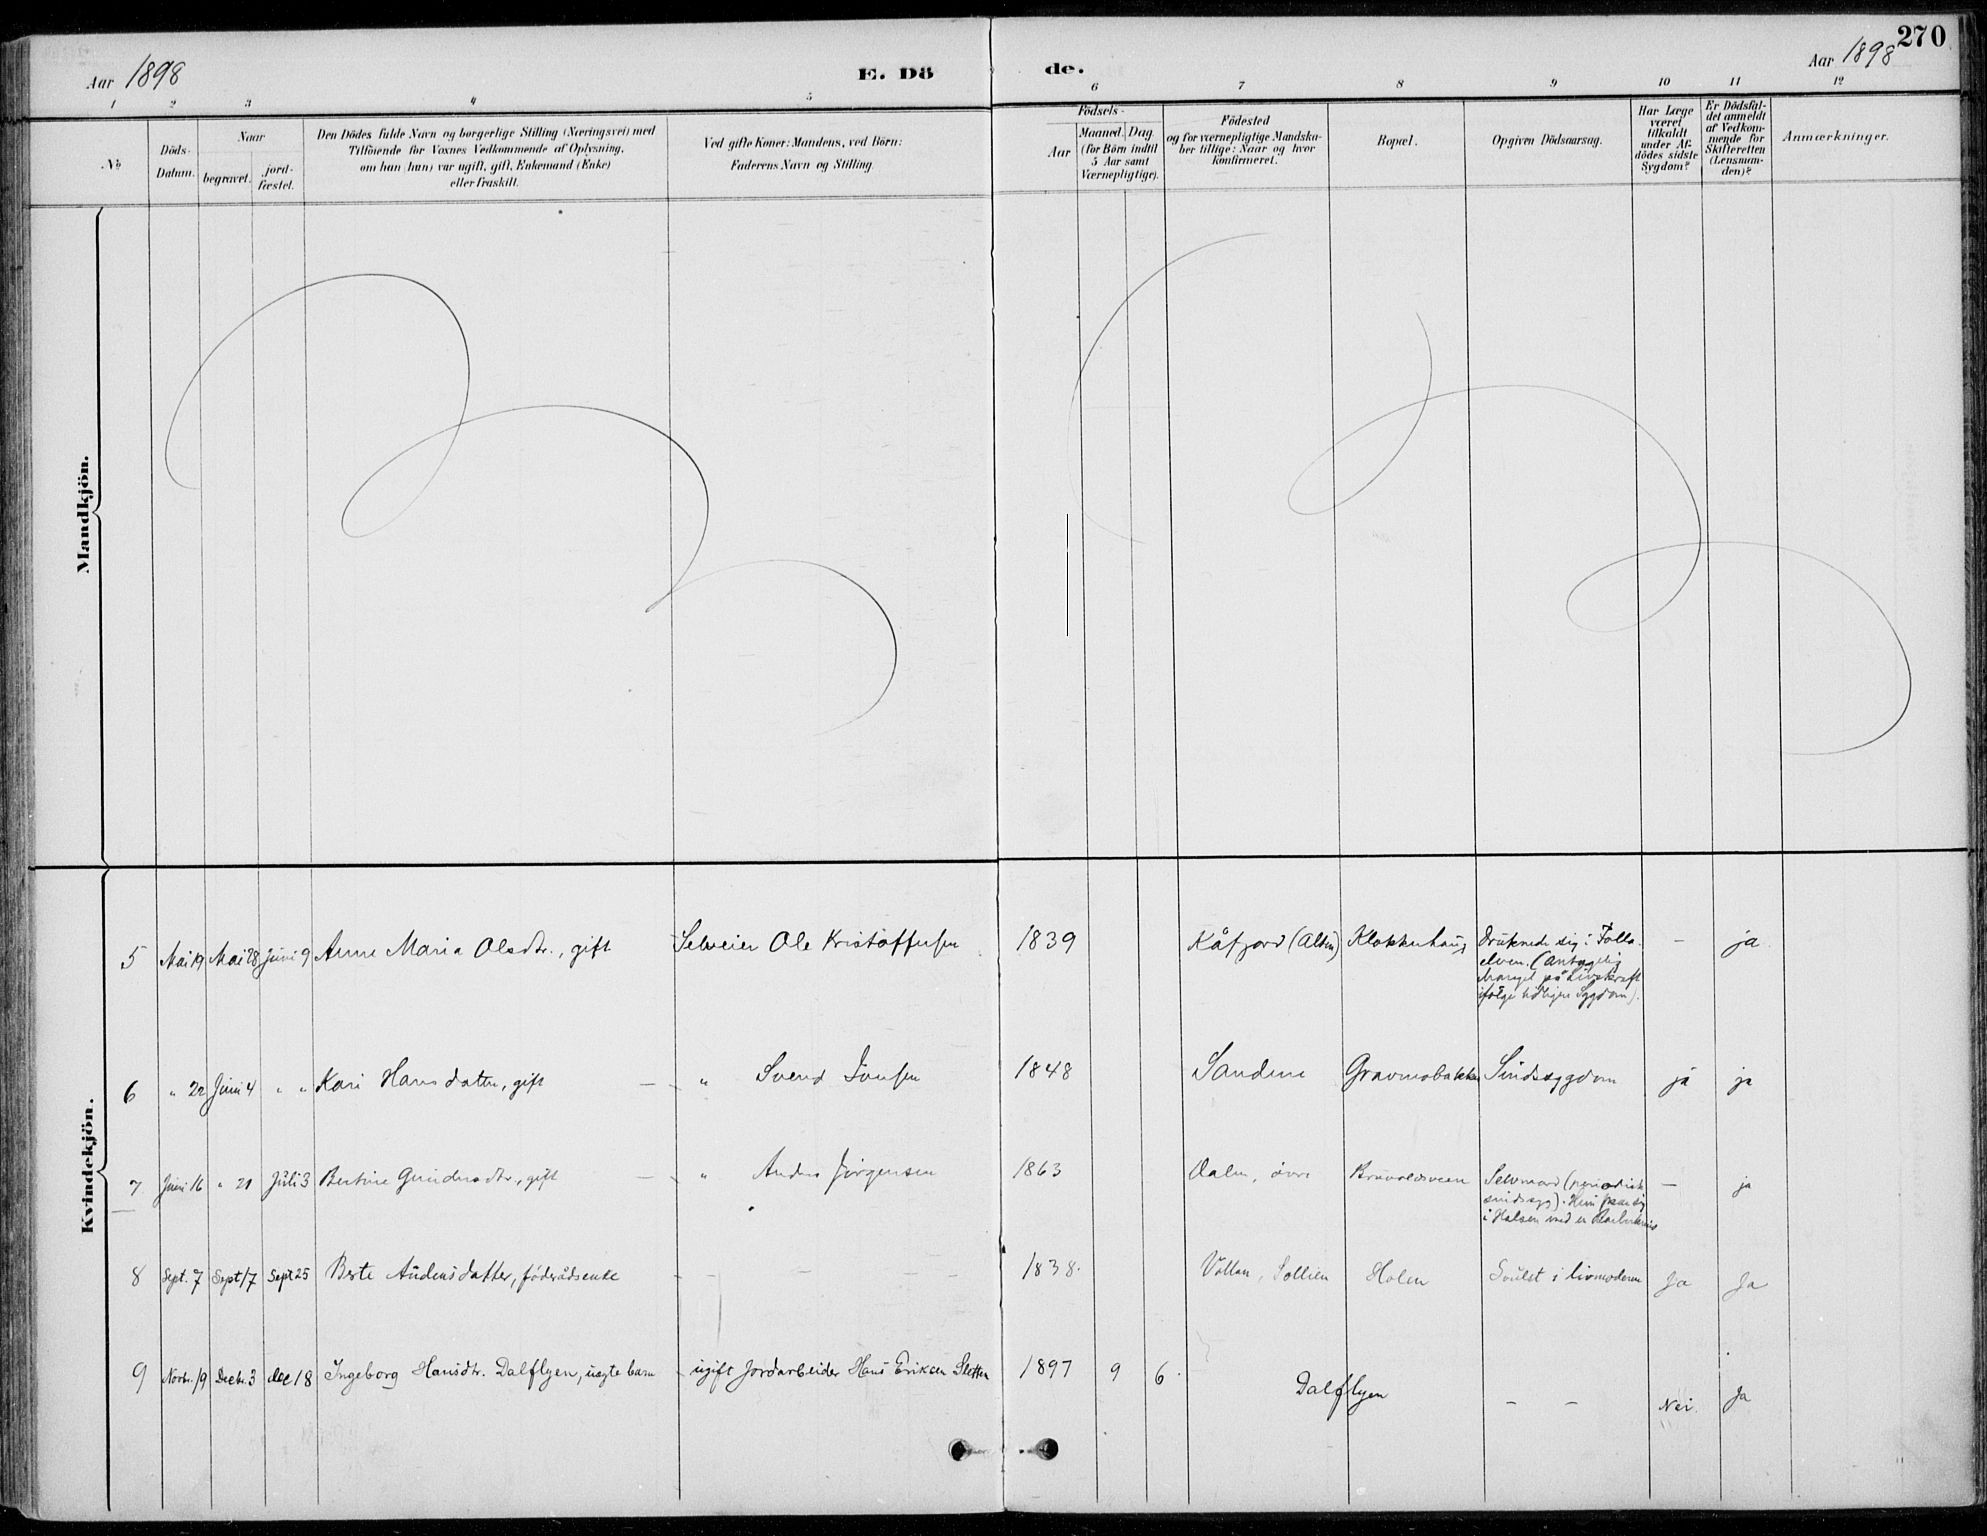 270
Aar 1898 E. Dö de. Aar 1898
1 2 3 4 5 6 7 8 9 10 11 12
No
Döds-
Datum.
Naar
begravet.
jord-
fæstet.
Den Dödes fulde Navn og borgerlige Stilling (Næringsvei) med
Tilföiende for Voxnes Vedkommende af Oplysning,
om han (hun) var ugift, gift, Enkemand (Enke)
eller fraskilt.
Ved gifte Koner: Mandens, ved Börn:
Faderens Navn og Stilling.
Födsels-
Aar
Maaned. Dag
(for Börn indtil
5 Aar samt
Værnepligtige).
Födested
og for værnepligtige Mandska-
ber tillige: Naar og hvor
konfirmeret.
Bopæl.
Opgiven Dödsaarsag.
Har Læge
været
tilkaldt
under Af-
dödes sidste
Sygdom?
Er Dödsfal-
det anmeldt
af Vedkom-
mende for
Skifteretten
(Lensman-
den)?
Anmærkninger.
Mandkjön.
Kvindekjön.
5 Mai 19 Mai 28 Juni 9 Anne Maria Olsdtr., gift Selveier Ole Kristoffersen 1839 Kåfjord (Alten) Klokkerhaug Druknede sig i Folla- – ja
elven. (Antagelig
Mangel på Livskraft
ifølge tidligere Sygdom).
6 " 22 Juni 4 " " Kari Hansdatter, gift – " Svend Jonsen 1848 Sandene Gravmobakken Sindssygdom ja ja
7 Juni 16 " 21 Juli 3 Bertine Gundersdtr., gift – " Anders Jörgensen 1863 Dalen, övre Selvmord (periodisk – ja
sindssyg). Hun skar sig
i Halsen med en Barberkniv
8 Sept. 7 Sept 17 Sept 25 Berte Audensdatter, föderådsenke – – – – 1838. Vollan, Sollien Holen Svulst i livmoderen Ja Ja
9 Novbr. 19 Decbr. 3 dec 18 Ingeborg Hansdtr. Dalflyen, uægte barn ugift Jordarbeider Hans Eriksen Sletten 1897 9 6. Dalflyen – – Nei. Ja